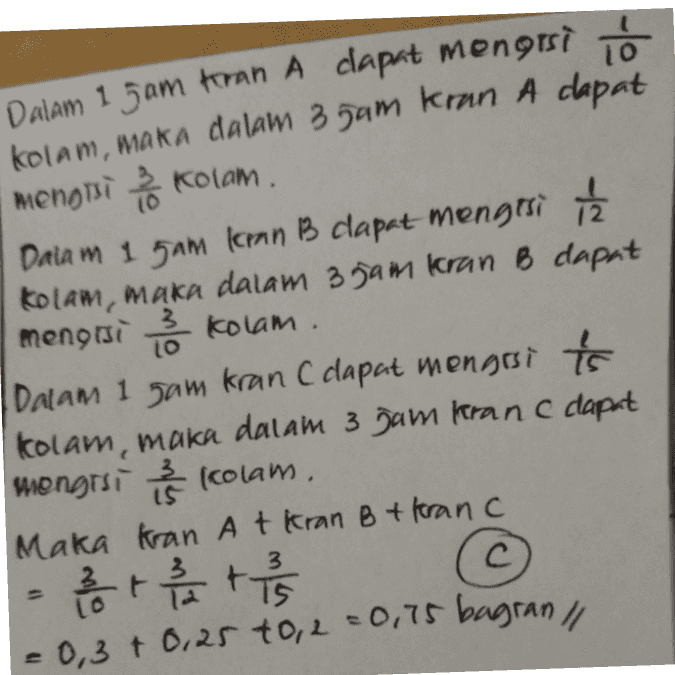 Dalam 1 jam kran A dapat mengisi 1/10
kolam, maka dalam 3 jam kran A dapat
mengisi 3/10 kolam.
Dalam 1 jam kran B dapat mengisi 1/12
kolam, maka dalam 3 jam kran B dapat
mengisi 3/10 kolam.
Dalam 1 jam kran C dapat mengisi 1/15
kolam, maka dalam 3 jam kran C dapat
mengisi 3/15 kolam.
Maka kran A + kran B + kran C
= 3/10 + 3/12 + 3/15
C
= 0,3 + 0,25 + 0,2 = 0,75 bagian //